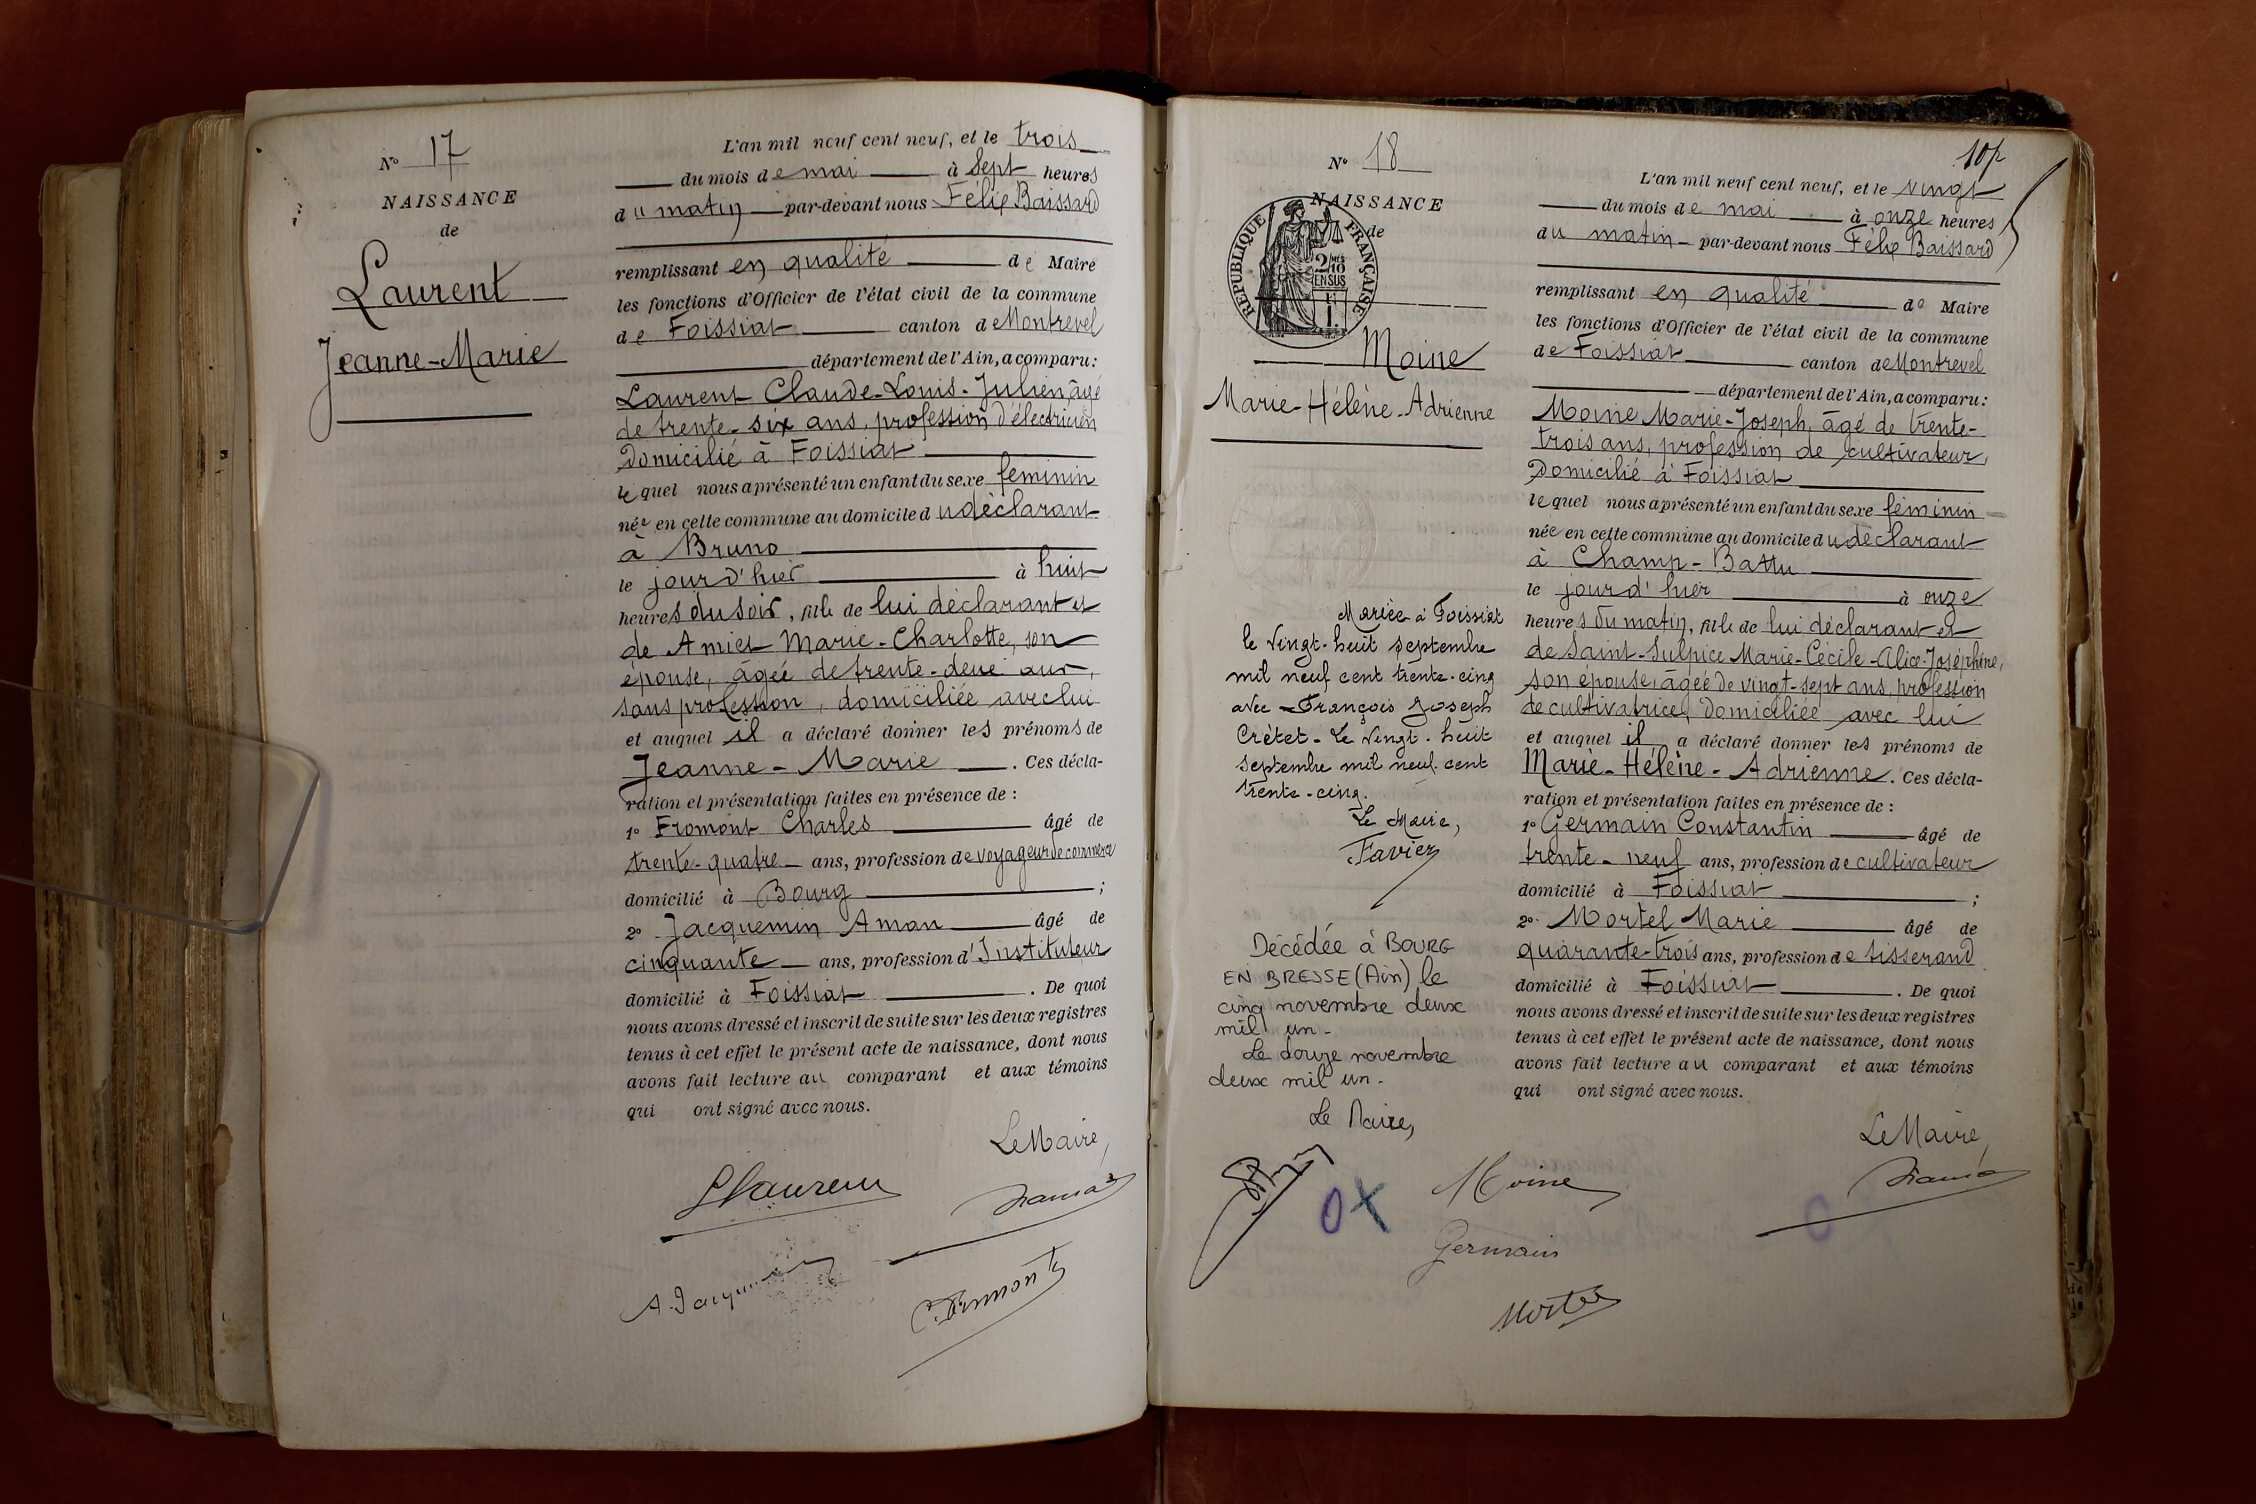 N° 17
NAISSANCE
de
Laurent
Jeanne-Marie
L'an mil neuf cent neuf, et le trois
du mois de mai à sept heures
du matin par-devant nous Félix Baissard
remplissant en qualité de Maire
les fonctions d'Officier de l'état civil de la commune
de Foissiat canton de Montrevel
département de l'Ain, a comparu:
Laurent Claude-Louis-Julien âgé
de trente-six ans, profession d'électricien
domicilié à Foissiat
lequel nous a présenté un enfant du sexe féminin
née en cette commune au domicile du déclarant
à Bruno
le jour d'hier à huit
heures du soir, fille de lui déclarant et
de Amiet Marie-Charlotte, son
épouse, âgée de trente-deux ans,
sans profession, domiciliée avec lui
et auquel il a déclaré donner les prénoms de
Jeanne-Marie. Ces décla-
ration et présentation faites en présence de :
1° Fromont Charles âgé de
trente-quatre ans, profession de voyageur de commerce
domicilié à Bourg ;
2° Jacquemin Aman âgé de
cinquante ans, profession d'Instituteur
domicilié à Foissiat. De quoi
nous avons dressé et inscrit de suite sur les deux registres
tenus à cet effet le présent acte de naissance, dont nous
avons fait lecture au comparant et aux témoins
qui ont signé avec nous.
Le Maire,
Laurent
A. Jacquemin
C. Fromont
10
N° 18
NAISSANCE
de
RÉPUBLIQUE FRANÇAISE
2/10
EN SUS
Moine
Marie-Hélène-Adrienne
Mariée à Foissiat
le vingt-huit septembre
mil neuf cent trente-cinq
avec François Joseph
Crétet - Le vingt-huit
septembre mil neuf cent
trente-cinq.
Le Maire,
Favier
Décédée à BOURG
EN BRESSE (Ain) le
cinq novembre deux
mil un -
Le douze novembre
deux mil un -
Le Maire,
L'an mil neuf cent neuf, et le vingt
du mois de mai à onze heures
du matin par-devant nous Félix Baissard
remplissant en qualité de Maire
les fonctions d'Officier de l'état civil de la commune
de Foissiat canton de Montrevel
département de l'Ain, a comparu:
Moine Marie-Joseph, âgé de trente-
trois ans, profession de cultivateur,
domicilié à Foissiat
lequel nous a présenté un enfant du sexe féminin
née en cette commune au domicile du déclarant
à Champ-Battu
le jour d'hier à onze
heures du matin, fille de lui déclarant et
de Saint-Sulpice Marie-Cécile-Alice-Joséphine,
son épouse, âgée de vingt-sept ans, profession
de cultivatrice, domiciliée avec lui
et auquel il a déclaré donner les prénoms de
Marie-Hélène-Adrienne. Ces décla-
ration et présentation faites en présence de :
1° Germain Constantin âgé de
trente-neuf ans, profession de cultivateur
domicilié à Foissiat ;
2° Mortel Marie âgé de
quarante-trois ans, profession de tisserand
domicilié à Foissiat. De quoi
nous avons dressé et inscrit de suite sur les deux registres
tenus à cet effet le présent acte de naissance, dont nous
avons fait lecture au comparant et aux témoins
qui ont signé avec nous.
Le Maire,
Moine
Germain
Mortel